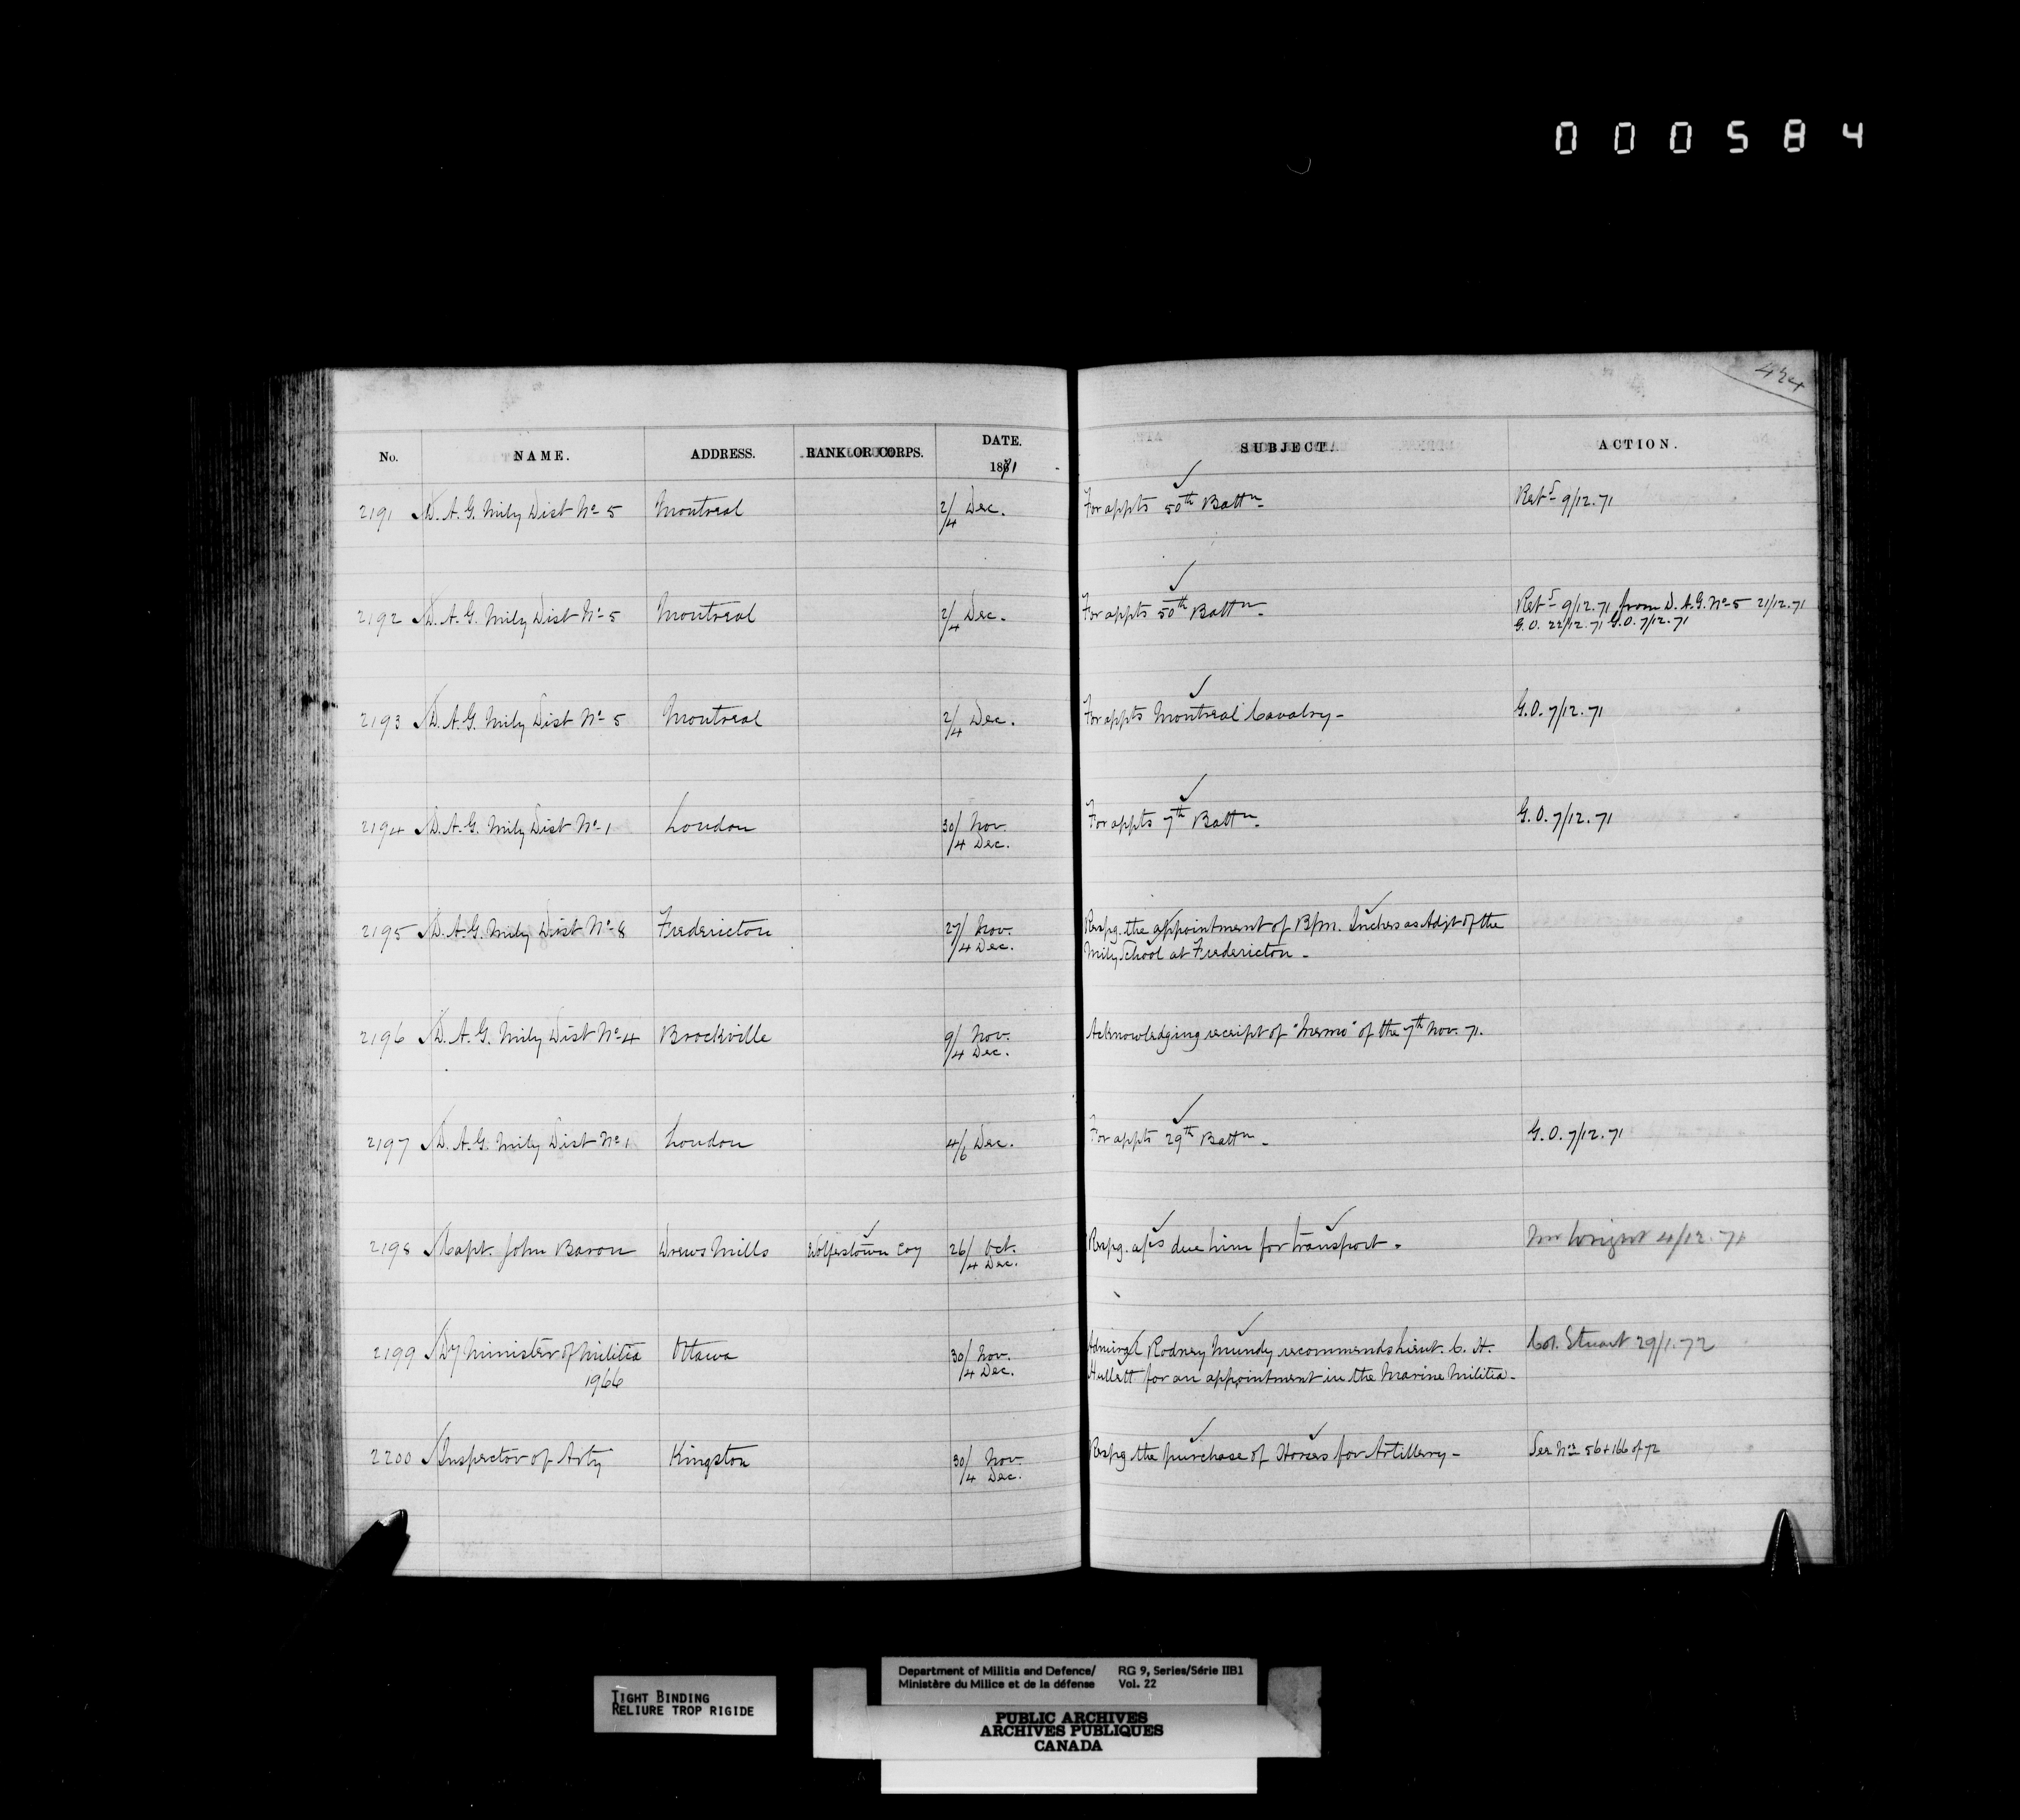 000584
424
No. NAME. ADDRESS. RANK OR CORPS. DATE. 1871 SUBJECT. ACTION.
2191 D. A. G. Mily Dist No 5 Montreal 2/4 Dec. For appts 50th Battn - Retd 9/12.71
2192 D. A. G. Mily Dist No 5 Montreal 2/4 Dec. For appts 50th Battn - Retd 9/12.71 from D. A. G. No 5 21/12.71
G. O. 22/12.71 G. O. 7/12.71
2193 D. A. G. Mily Dist No 5 Montreal 2/4 Dec. For appts Montreal Cavalry - G. O. 7/12.71
2194 D. A. G. Mily Dist No 1 London 30/ Nov. For appts 7th Battn - G. O. 7/12.71
/4 Dec.
2195 D. A. G. Mily Dist No 8 Fredericton 27/ Nov. Respg. the appointment of B/m. Inches as Adjt of the
/4 Dec. Mily School at Fredericton -
2196 D. A. G. Mily Dist No 4 Brockville 9/ Nov. Acknowledging receipt of "Memo" of the 7th Nov. 71.
/4 Dec.
2197 D. A. G. Mily Dist No 1 London 4/6 Dec. For appts 29th Battn - G. O. 7/12.71
2198 Capt. John Baron Drews Mills Wolfestown Coy 26/ Oct. Respg. a/cs due him for transport - Mr Wright 4/12.71
/4 Dec.
2199 Dy Minister of Militia Ottawa 30/ Nov. Admiral Rodney Mundy recommends Lieut. C. H. Col. Stuart 29/1.72
1966 /4 Dec. Hullett for an appointment in the Marine Militia -
2200 Inspector of Arty Kingston 30/ Nov. Respg the purchase of Horses for Artillery - See Nos 56 + 166 of 72
/4 Dec.
TIGHT BINDING
RELIURE TROP RIGIDE
Department of Militia and Defence/ RG 9, Series/Série IIB1
Ministère du Milice et de la défense Vol. 22
PUBLIC ARCHIVES
ARCHIVES PUBLIQUES
CANADA